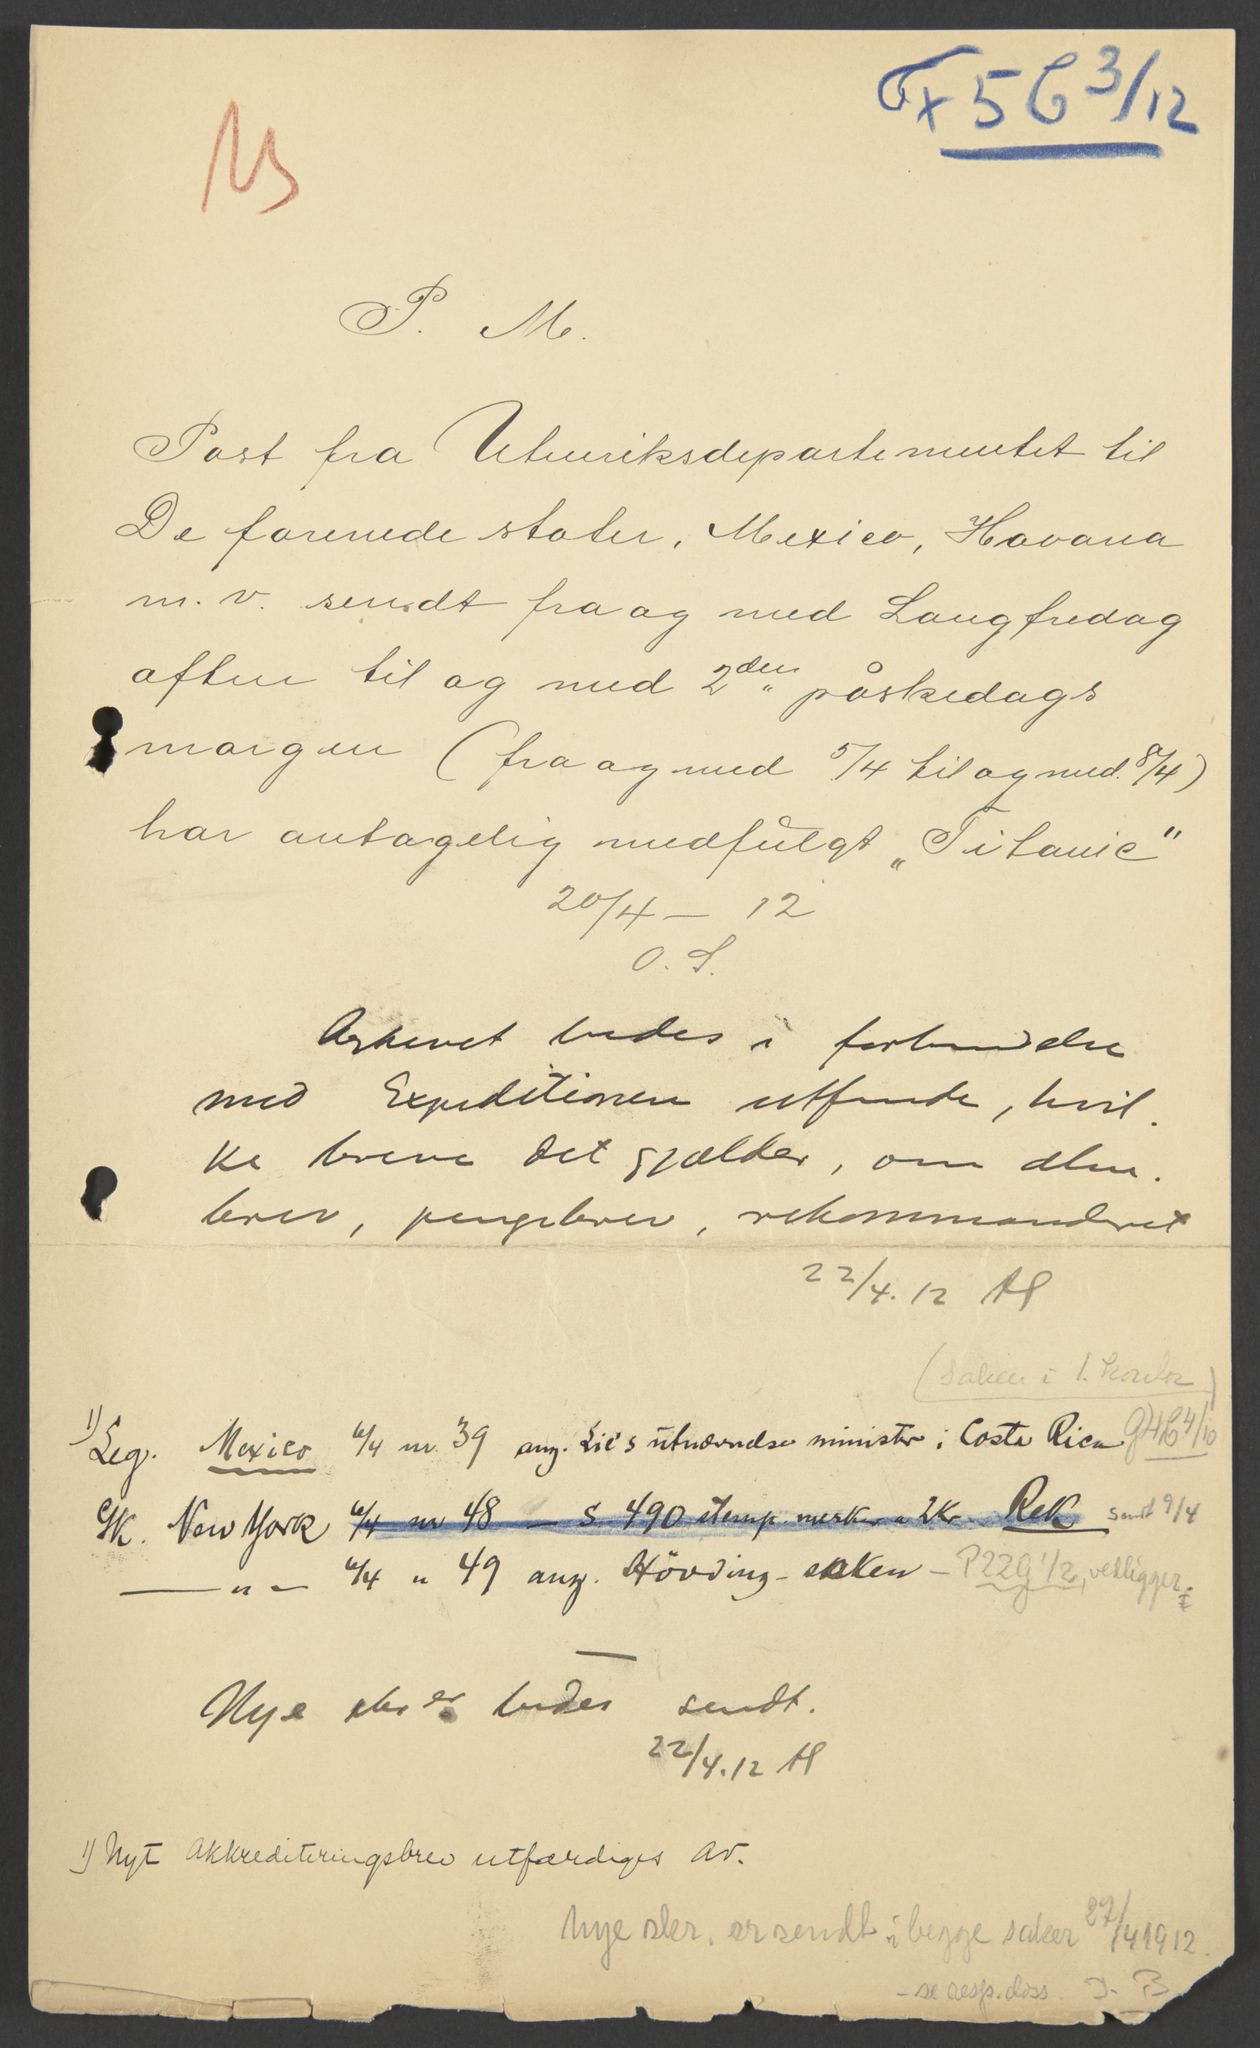 5 C 3/12
P. M.
Post fra Utenriksdepartementet til
De forenede stater, Mexico, Havana
m. v. sendt fra og med Langfredag
aften til og med 2den påskedags
morgen (fra og med 5/4 til og med 8/4)
har antagelig medfulgt „Titanic"
20/4 – 12
O. S.
Arkivet bedes i forbindelse
med Expeditionen utfinde, hvil-
ke breve det gjælder, om alm.
brev, pengebrev, rekommanderet
22/4.12
(saken i 1. kontor)
1) Leg. Mexico 6/4 nr. 39 ang. Lie's utnævnelse minister i Costa Rica G4C 4/10
GK. New York 6/4 nr 48 – S. 490 stemp. merker a 2 kr. Rek sendt 9/4
— " — 6/4 " 49 ang. Hövding-saken – P22G 1/2, vedligger.
Nye eks er bedes sendt.
22/4.12
1) Nyt akkrediteringsbrev utfærdiges av.
Nye eker. er sendt i begge saker 27/4 1912.
– se resp. doss. J. B